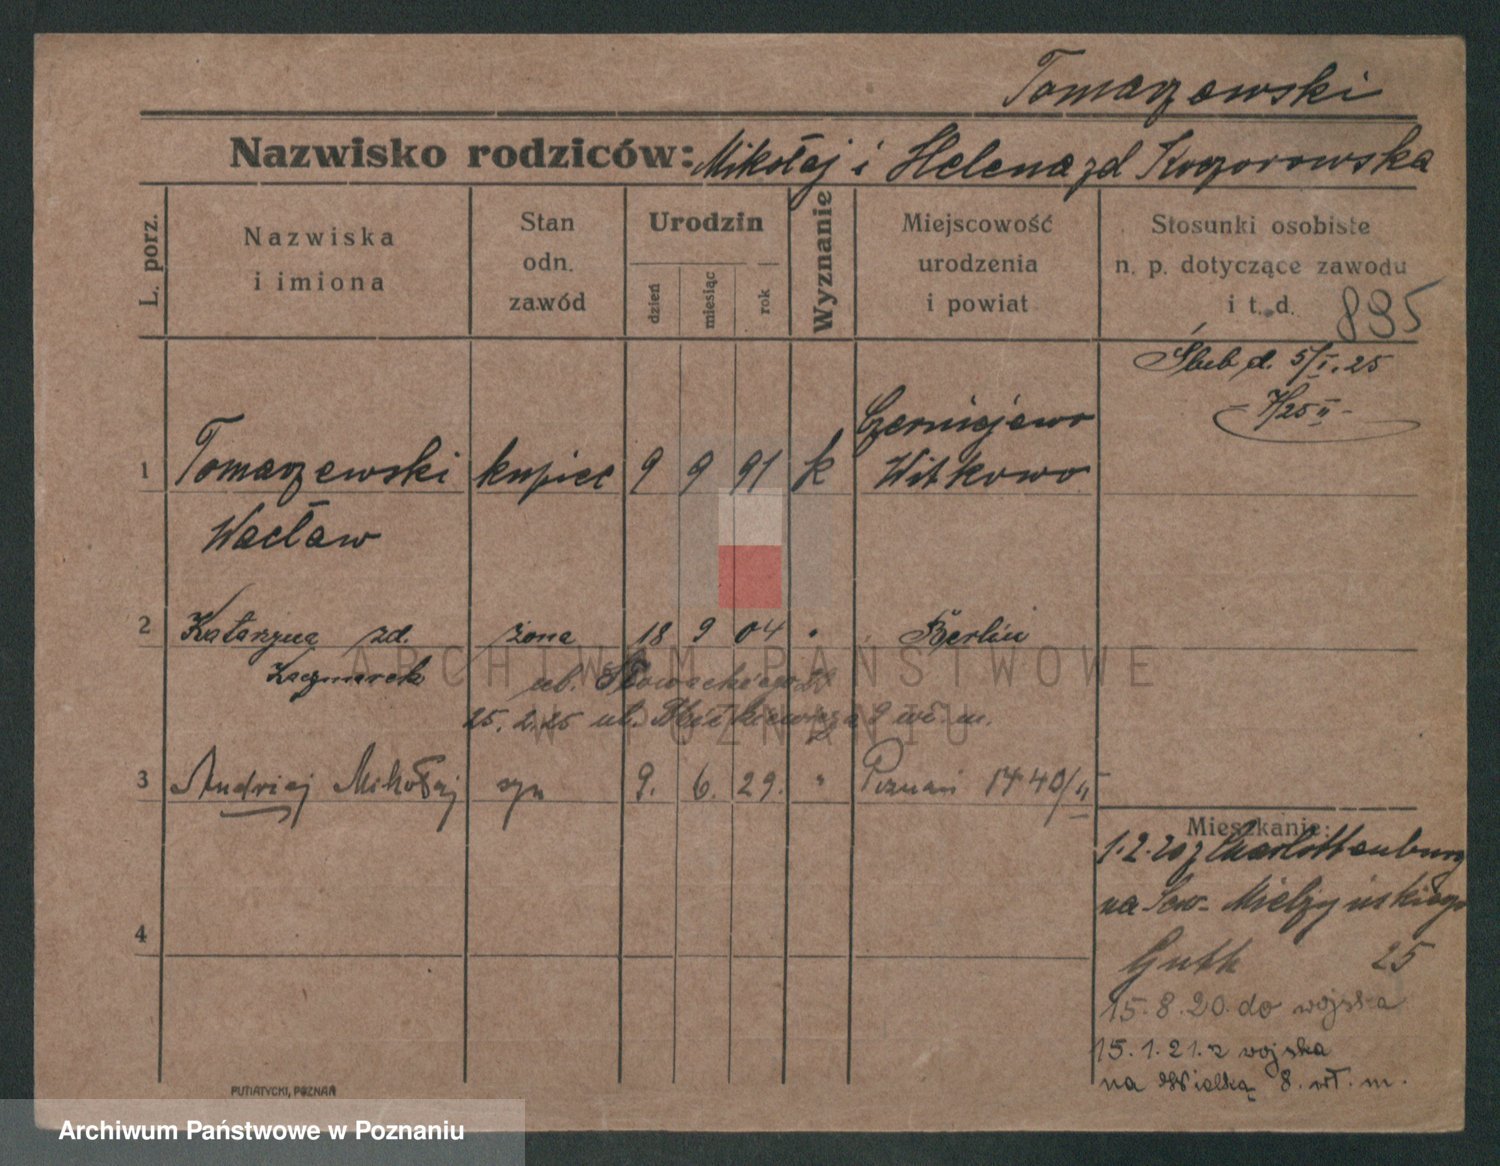 Tomaszewski
Nazwisko rodziców: Mikołaj i Helena zd
L. porz.
Nazwiska i imiona
Stan odn. zawód
Urodzin
dzień
miesiąc
rok
Wyznanie
Miejscowość urodzenia i powiat
Stosunki osobiste n. p. dotyczące zawodu i t. d.
895
Ślub d. 5/I.25
7/25 II
Czerniejewo
1 Tomaszewski kupiec 9 9 91 k Witkowo
Wacław
2 Katarzyna zd. żona 18 9 04 " Berlin
Kaczmarek ul. Słowackiego
25.2.25 ul. 9 wł. m.
3 Andrzej Mikołaj syn 9. 6. 29. " Poznań 1440/II
Mieszkanie:
1.2.20 z Charlottenburg
na Sew- Mielżyńskiego
Guth 25
15.8.20. do wojska
15.1.21. z wojska
na Wielką 8. wł. m.
4
PUTIATYCKI, POZNAŃ
ARCHIWUM PAŃSTWOWE
W POZNANIU
Archiwum Państwowe w Poznaniu